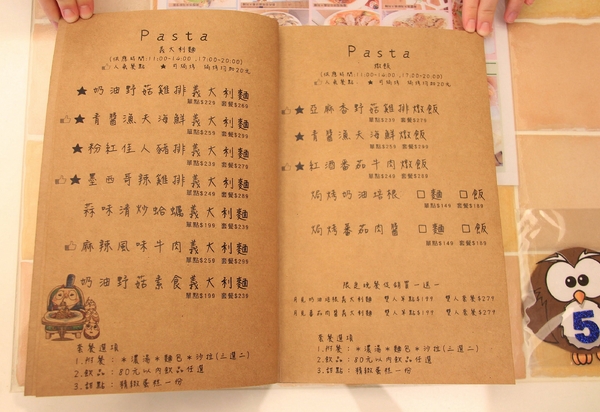 Pasta
義大利麵
(供應時間:11:00-14:00 ,17:00-20:00)
人氣餐點 ★可焗烤 焗烤均加20元
★奶油野菇雞排義大利麵
單點$229 套餐$269
★青醬漁天海鮮義大利麵
單點$259 套餐$299
★粉紅佳人豬排義大利麵
單點$239 套餐$279
★墨西哥辣雞排義大利麵
單點$249 套餐$289
蒜味清炒蛤蠣義大利麵
單點$199 套餐$239
麻辣風味牛肉義大利麵
單點$249 套餐$289
奶油野菇素食義大利麵
單點$199 套餐$239
套餐選項
1.附餐:*濃湯*麵包*沙拉(三選二)
2.飲品:80元以內飲品任選
3.甜點:精緻蛋糕一份
Pasta
燉飯
(供應時間:11:00-14:00 ,17:00-20:00)
人氣餐點 ★可焗烤 焗烤均加20元
★亞麻香野菇雞排燉飯
★青醬漁天海鮮燉飯
★紅酒番茄牛肉燉飯
焗烤奶油培根 □麵 □飯
單點$149 套餐$189
焗烤番茄肉醬 □麵 □飯
單點$149 套餐$189
限定晚餐促銷買一送一
雙人單點$199 雙人套餐$279
雙人單點$199 雙人套餐$279
套餐選項
1.附餐:*濃湯*麵包*沙拉(三選二)
2.飲品:80元以內飲品任選
3.甜點:精緻蛋糕一份
5